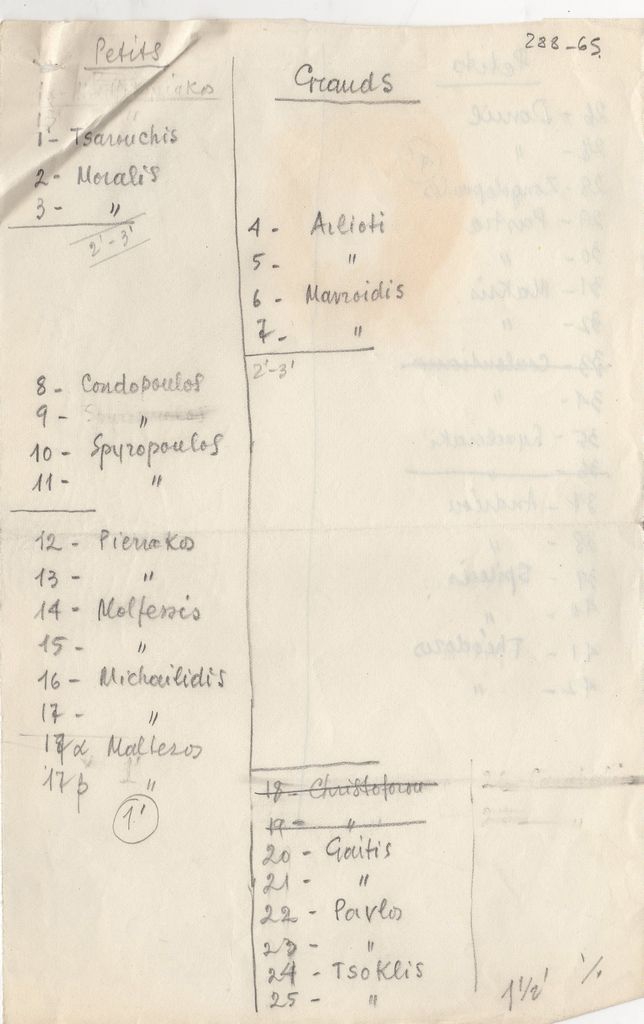 288-65
Petits
1- Tsarouchis
2- Moralis
3- "
2'-3'
8- Condopoulos
9- "
10- Spyropoulos
11- "
12- Pierrakos
13- "
14- Molfessis
15- "
16- Michailidis
17- "
17α Maltezos
17β "
1'
Grands
4- Arlioti
5- "
6- Mavroidis
7- "
2'-3'
18- Christoforou
19- "
20- Gaitis
21- "
22- Pavlos
23- "
24- Tsoklis
25- "
1 1/2'